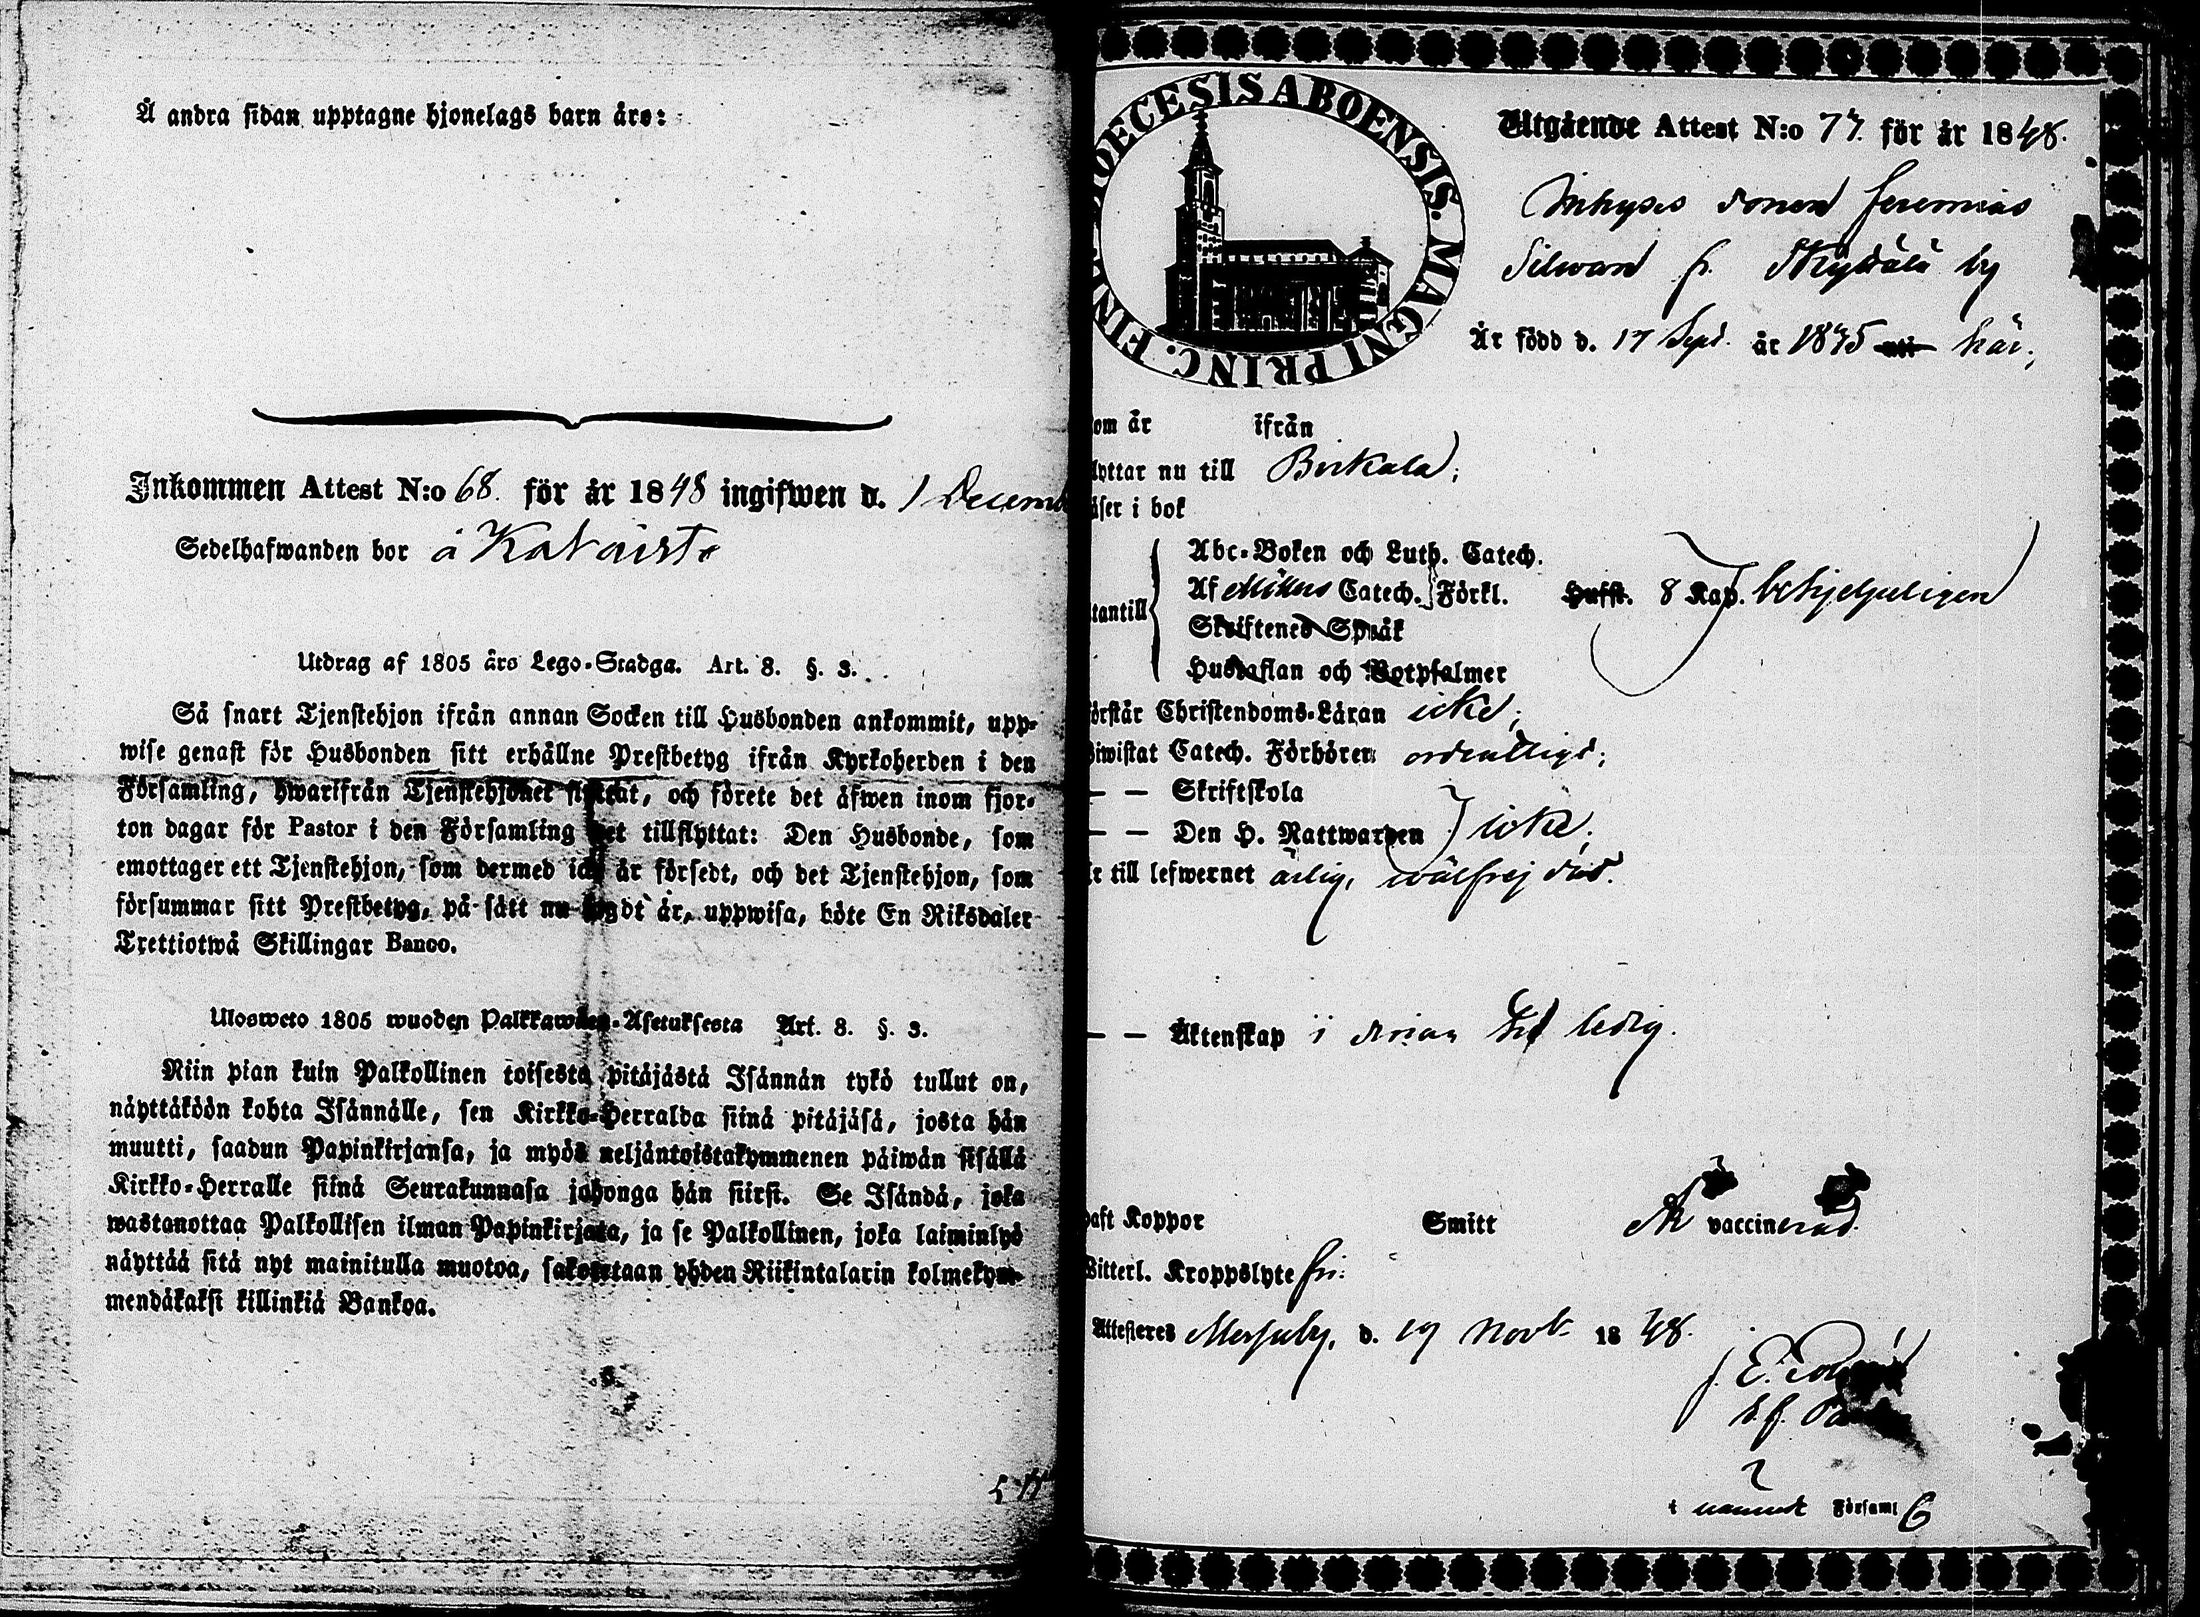 Å andra sidan upptagne hjonelags barn äro:
Inkommen Attest N:o 68. för år 1848 ingifwen d. 1 Decemb
Sedelhafwanden bor å Katáisto
Utdrag af 1805 års Lego-Stadga. Art. 8. §. 3.
Så snart Tjenstehjon ifrån annan Socken till Husbonden ankommit, upp-
wise genast för Husbonden sitt erhållne Prestbetyg ifrån Kyrkoherden i den
Församling, hwarifrån Tjenstehjonet flyttat, och förete det äfwen inom fjor-
ton dagar för Pastor i den Församling det tillflyttat: Den Husbonde, som
emottager ett Tjenstehjon, som dermed icke är försedt, och det Tjenstehjon, som
försummar sitt Prestbetyg, på sätt nu sagdt är, uppwisa, böte En Riksdaler
Trettiotwå Skillingar Banco.
Ulosweto 1805 wuoden Palkkawäen-Asetuksesta Art. 8. §. 3.
Niin pian kuin Palkollinen toisesta pitäjästä Isännän tykö tullut on,
näyttäköön kohta Isännälle, sen Kirkko-Herralda siinä pitäjäsä, josta hän
muutti, saadun Papinkirjansa, ja myös neljäntoistakymmenen päiwän sisällä
Kirkko-Herralle siinä Seurakunnasa johonga hän siirsi. Se Isändä, joka
wastanottaa Palkollisen ilman Papinkirjata, ja se Palkollinen, joka laiminlyö
näyttää sitä nyt mainitulla muotoa, sakoitetaan yhden Riikintalarin kolmekym-
mendäkaksi killinkiä Bankoa.
DIOECESIS ABOENSIS. MAGNI PRINC. FINL.
Utgående Attest N:o 77. för år 1848.
Inhyses sonen Jeremias
Silwan fr. by
Är född d. 17 Sept. år 1835 uti här;
om år ifrån
lyttar nu till Birkala;
äser i bok
Abc-Boken och Luth. Catech.
Af Möllers Catech. Förkl. Hufst. 8 Kap. behjelpeligen
tantill
Skriftenes Språk
Hustaflan och Botpsalmer
örstår Christendoms-Läran icke;
iwistat Catech. Förhören ordentligt;
— — Skriftskola
— — Den H. Nattwarden icke;
r till lefwernet ärlig, wälfrejdad.
— — Äktenskap i ledig.
aft Koppor Smitt Är vaccinerad.
Witterl. Kroppslyte fri:
Attesteres d. 19 Novb. 1848.
J. E.
i nämnde Församl